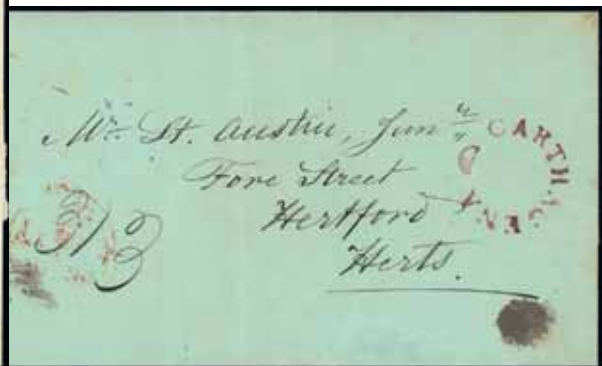 Mr. St. Austin, Junr
Fore Street
Hertford
Herts.
CARTHAGENA